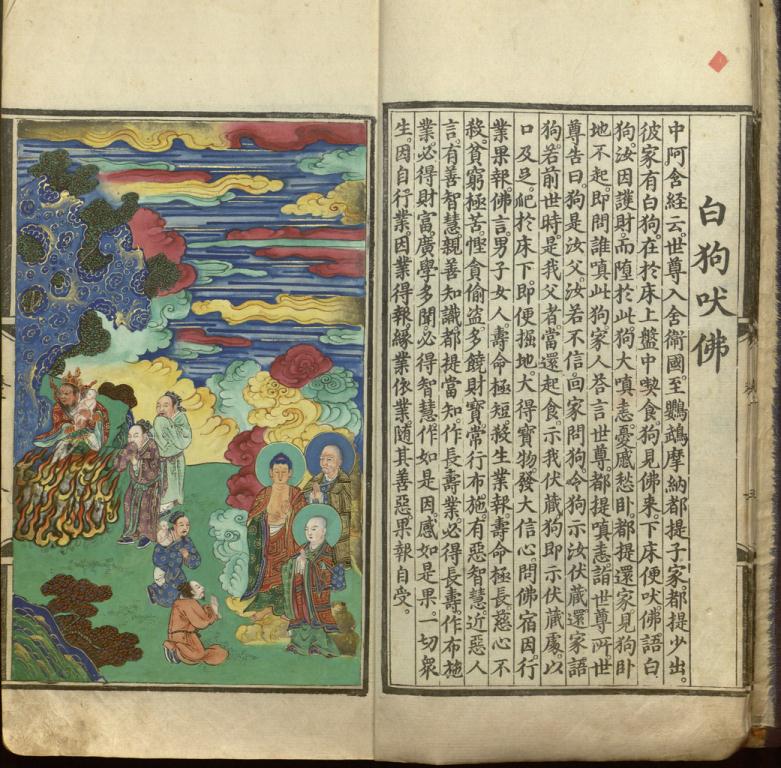 白狗吠佛
中阿含経云。世尊入舍衛國。至鸚鵡摩納都提子家。都提少出。
彼家有白狗。在於床上盤中喫食。狗見佛来。下床便吠。佛語白
狗。汝因護財。而墮於此狗。大嗔恚。憂慼愁卧。都提還家。見狗卧
地不起。即問誰嗔此狗。家人荅言世尊。都提嗔恚。詣世尊所。世
尊告曰。狗是汝父。汝若不信。回家問狗。令狗示汝伏藏。還家語
狗。若前世時。是我父者。當還起食。示我伏藏。狗即示伏藏處。以
口及足。跑於床下。即便掘地。大得寶物。發大信心。問佛宿因。行
業果報。佛言。男子女人。壽命極短。殺生業報。壽命極長。慈心不
殺。貧窮極苦。慳貪偷盗。多饒財寶。常行布施。有惡智慧。近惡人
言。有善智慧。親善知識。都提當知。作長壽業。必得長壽。作布施
業。必得財富。廣學多聞。必得智慧。作如是因。感如是果。一切衆
生。因自行業。因業得報。緣業依業。隨其善惡。果報自受。